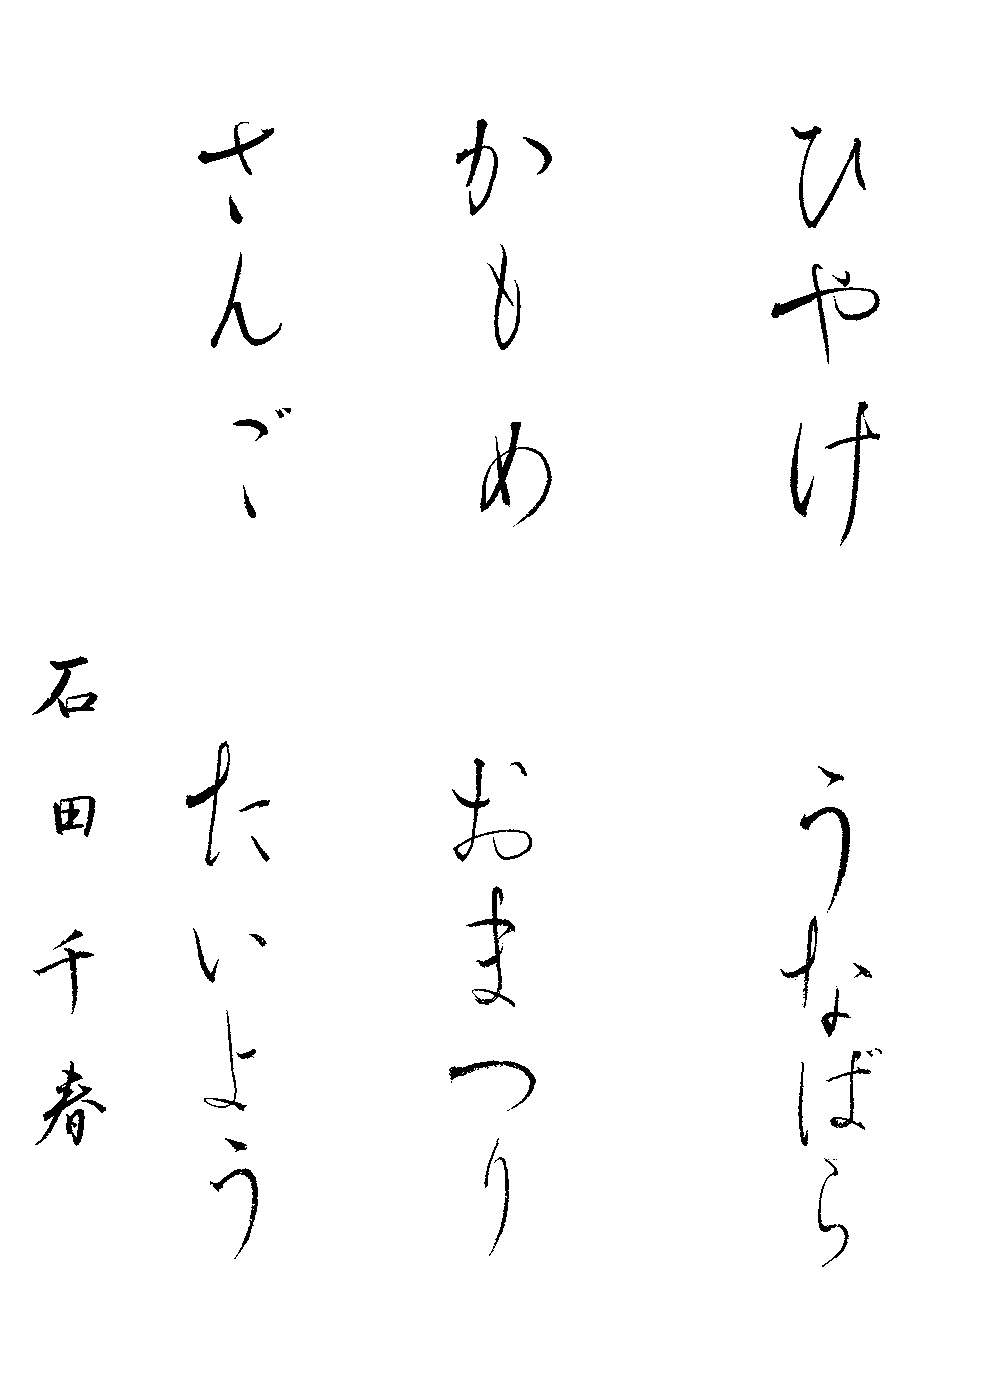 ひやけ うなばら
かもめ おまつり
さんご たいよう
石田千春